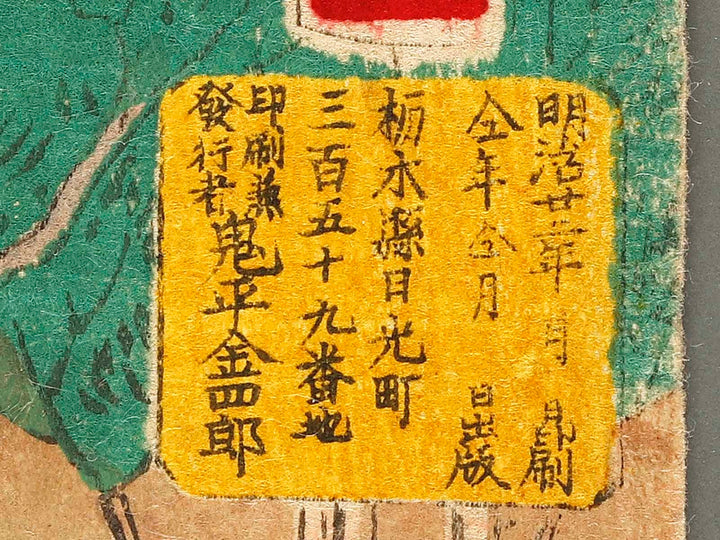 明治廿二年 月 日印刷
仝年仝月 日出版
栃木縣日光町
三百五十九番地
印刷兼
發行者 鬼平金四郎